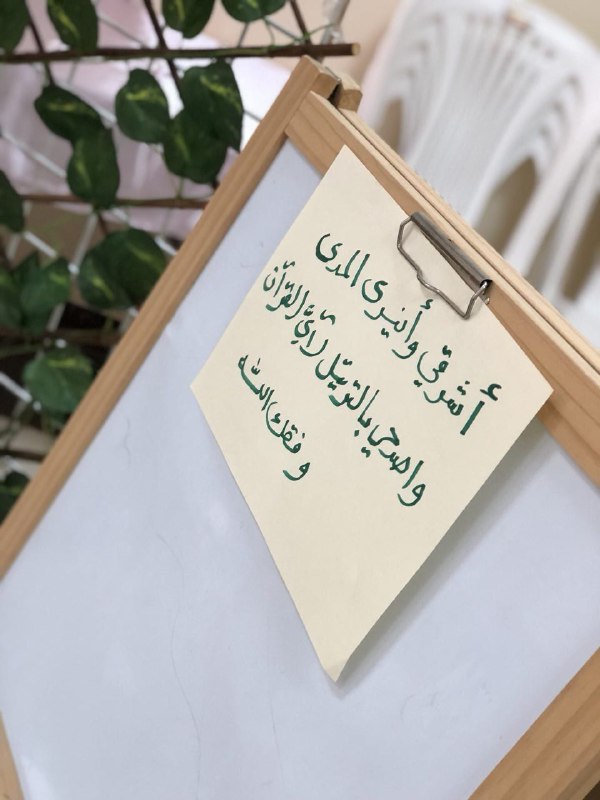 أشرقي وأنيري المدى
واصدحي بالترتيل لآيِّ القرآن
وفقك الله